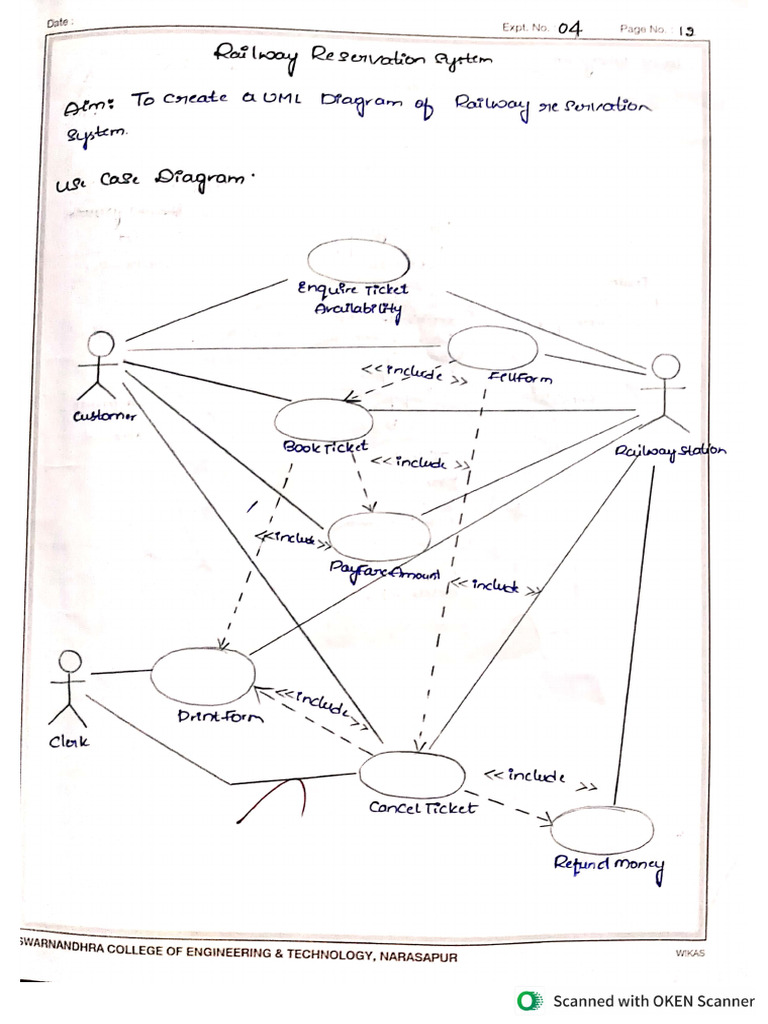 Date :
Expt. No. 04 Page No. : 19
Railway Reservation System
Aim: To Create a UML Diagram of Railway reservation
System.
Use Case Diagram.
Enquire Ticket
Availability
<<include>>
FillForm
Customer
Book Ticket
Railway Station
<<include>>
<<include>>
PayFareAmount
<<include>>
<<include>>
PrintForm
Clerk
<<include>>
Cancel Ticket
Refund money
SWARNANDHRA COLLEGE OF ENGINEERING & TECHNOLOGY, NARASAPUR
WIKAS
Scanned with OKEN Scanner